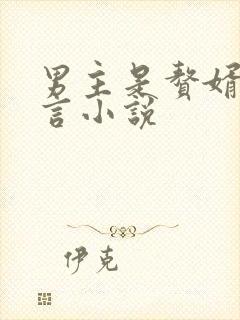 男主是赘婿
言小说
伊克